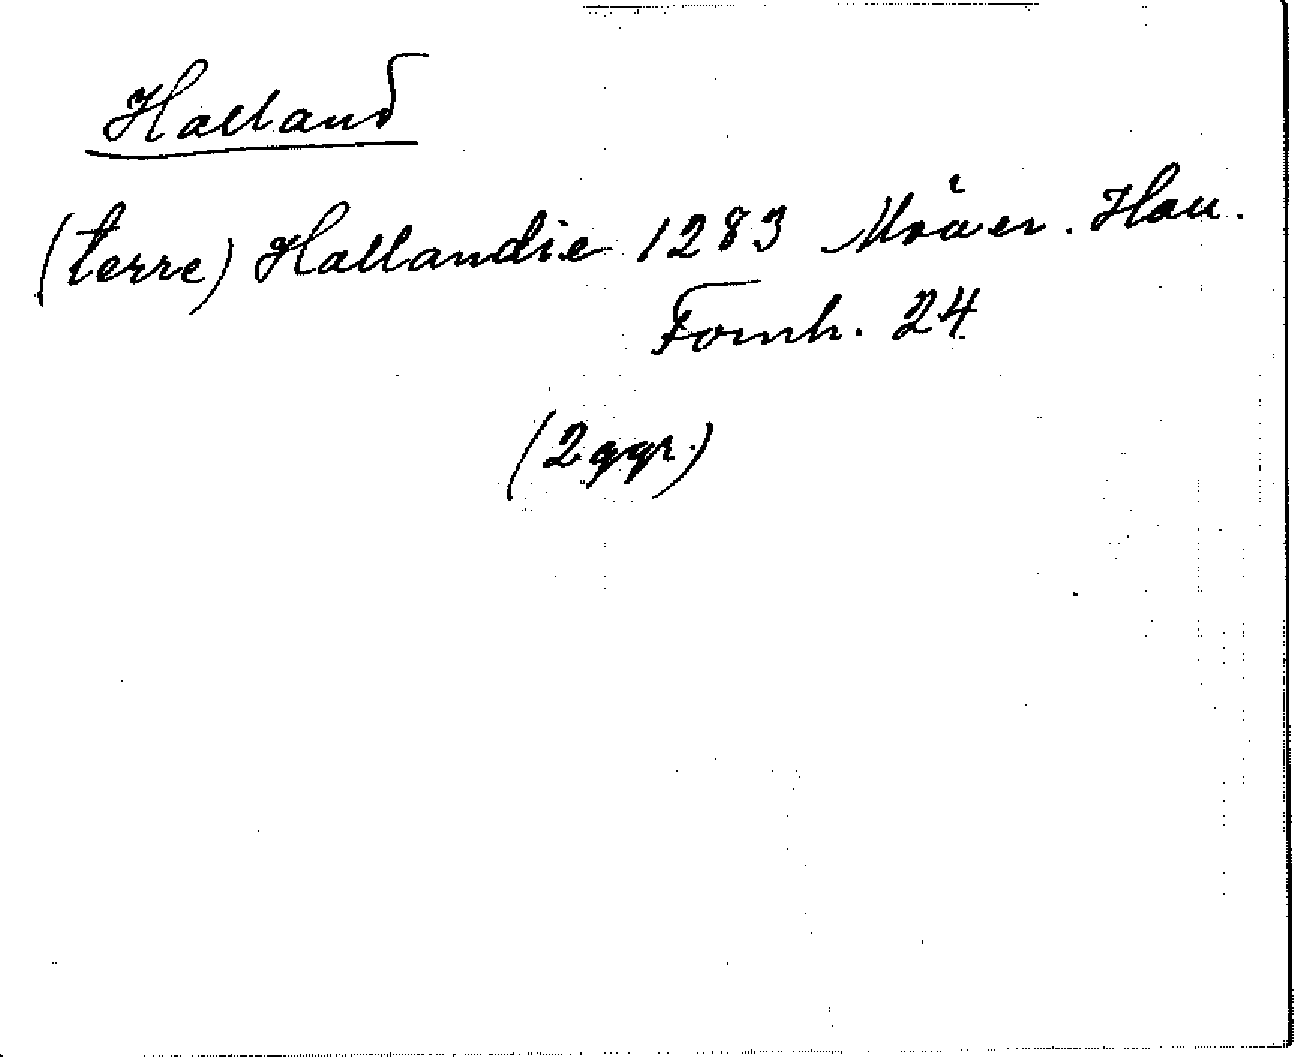 Halland
(terre) Hallandie 1283
Fornh. 24
(2 ggr.)